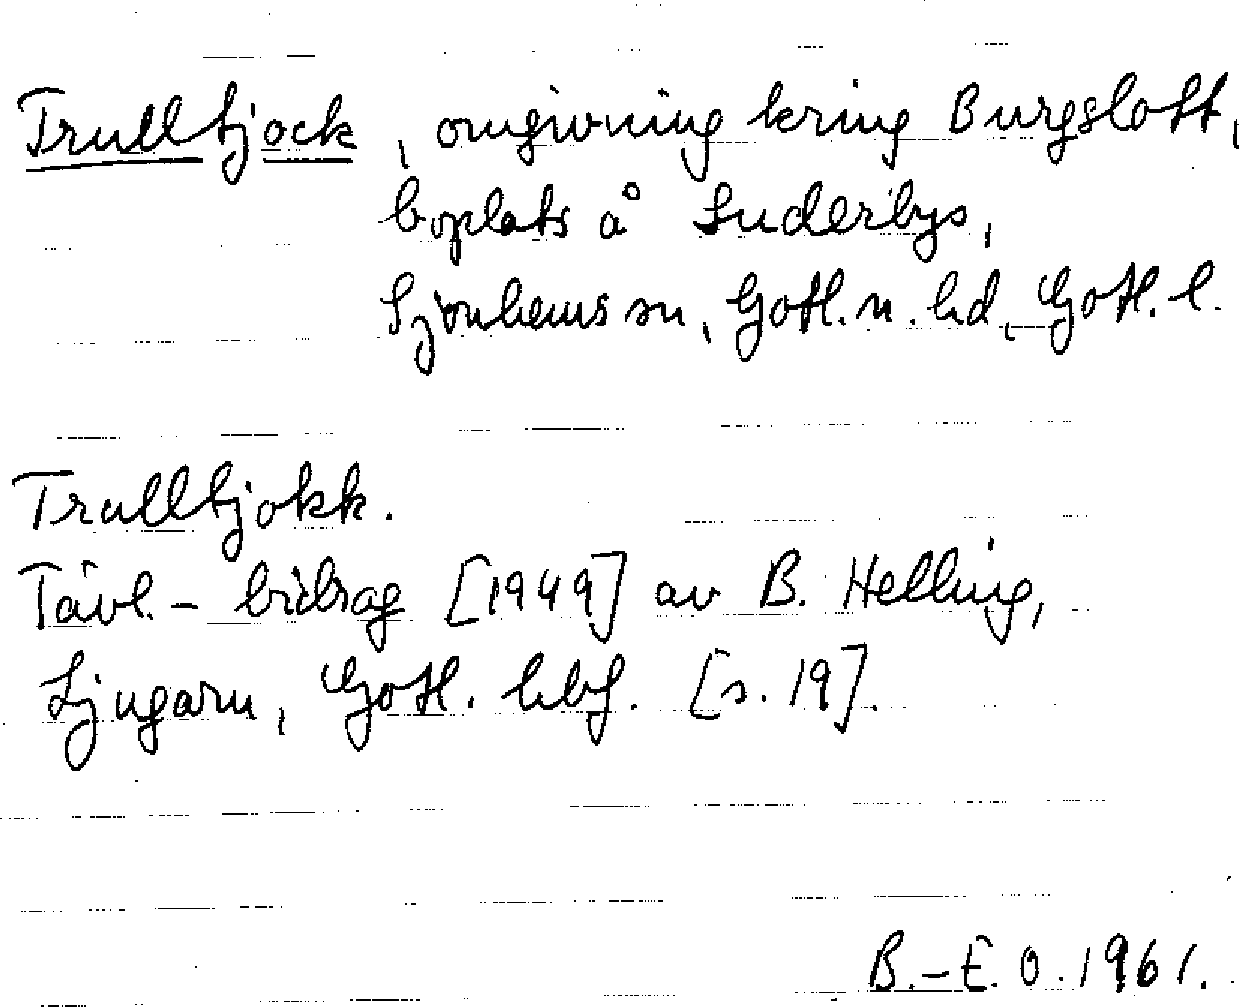 Trulltjock, omgivning kring Burgslott,
boplats å Suderbys,
Sjonhems sn, Gotl. n. hd, Gotl. l.
Trulltjokk.
Tävl.- bidrag [1949] av B. Helling,
Ljugarn, Gotl. hbf. [s. 19].
B.-E. O. 1961.